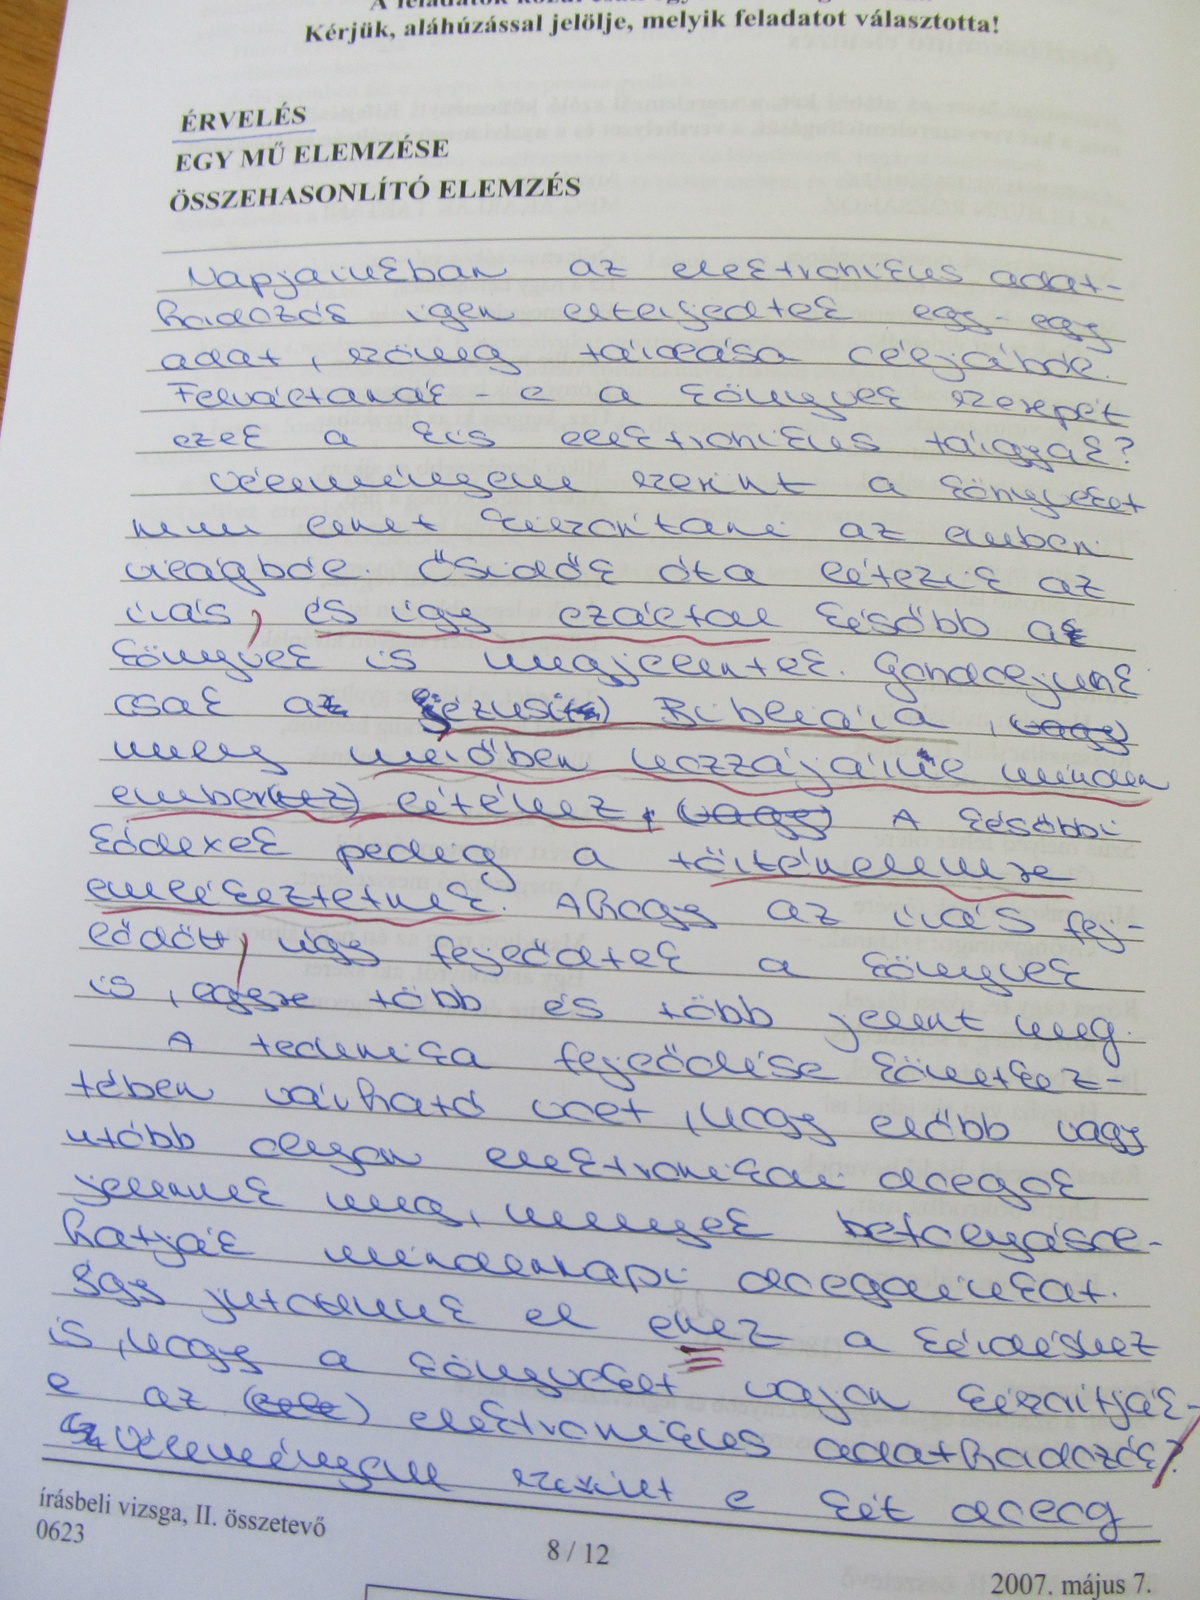 Kérjük, aláhúzással jelölje, melyik feladatot választotta!
ÉRVELÉS
EGY MŰ ELEMZÉSE
ÖSSZEHASONLÍTÓ ELEMZÉS
Napjainkban az elektronikus adat-
hordozók igen elterjedtek egy-egy
adat, szöveg tárolása céljából.
Felváltanák-e a könyvek szerepét
ezek a kis elektronikus tárgyak?
Véleményem szerint a könyveket
nem lehet kiszorítani az emberi
világból. Ősidők óta létezik az
írás, és így ezáltal később a
könyvek is megjelentek. Gondoljunk
csak a Bibliára,
mely miben hozzájárult minden
ember létéhez. A későbbi
kódexek pedig a történelemre
emlékeztetnek. Ahogy az írás fej-
lődött, úgy fejlődtek a könyvek
is, egyre több és több jelent meg.
A technika fejlődése következ-
tében várható volt, hogy előbb vagy
utóbb olyan elektronikai dolgok
jelennek meg, melyek befolyásol-
hatják mindennapi dolgainkat.
Így jutottunk el ehez a kérdéshez
is, hogy a könyveket vajon kiszorítják-
e az elektronikus adathordozók?
Véleményem szerint e két dolog
írásbeli vizsga, II. összetevő
0623
8 / 12
2007. május 7.